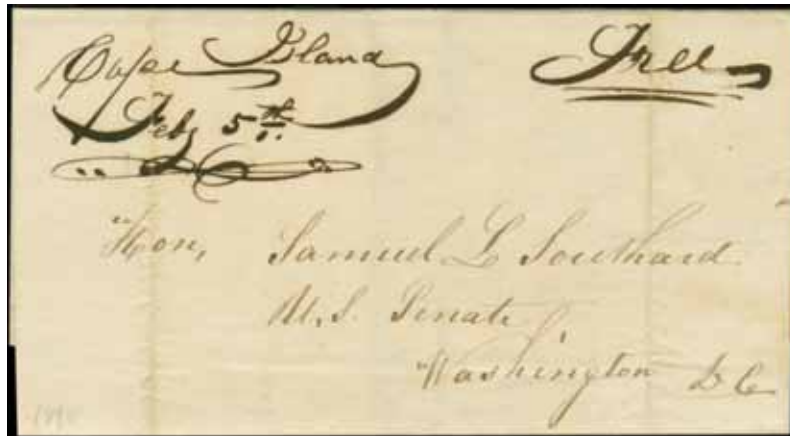 Cape Island Free
Feby 5th
Hon, Samuel L Southard
U.S. Senate,
Washington D C